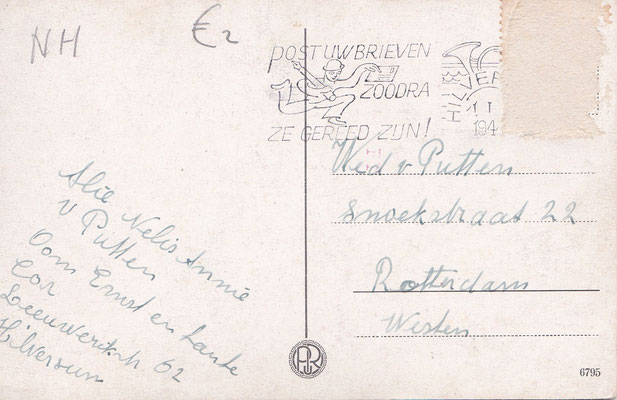 NH
€2
POST UW BRIEVEN
ZOODRA
ZE GEREED ZIJN!
HILVER
194
Alie Nelis Annie
v Putten
Oom Ernst en tante
Cor
Leeuwerikstr 62
Hilversum
Wed v Putten
Snoekstraat 22
Rotterdam
Westen
JR
6795